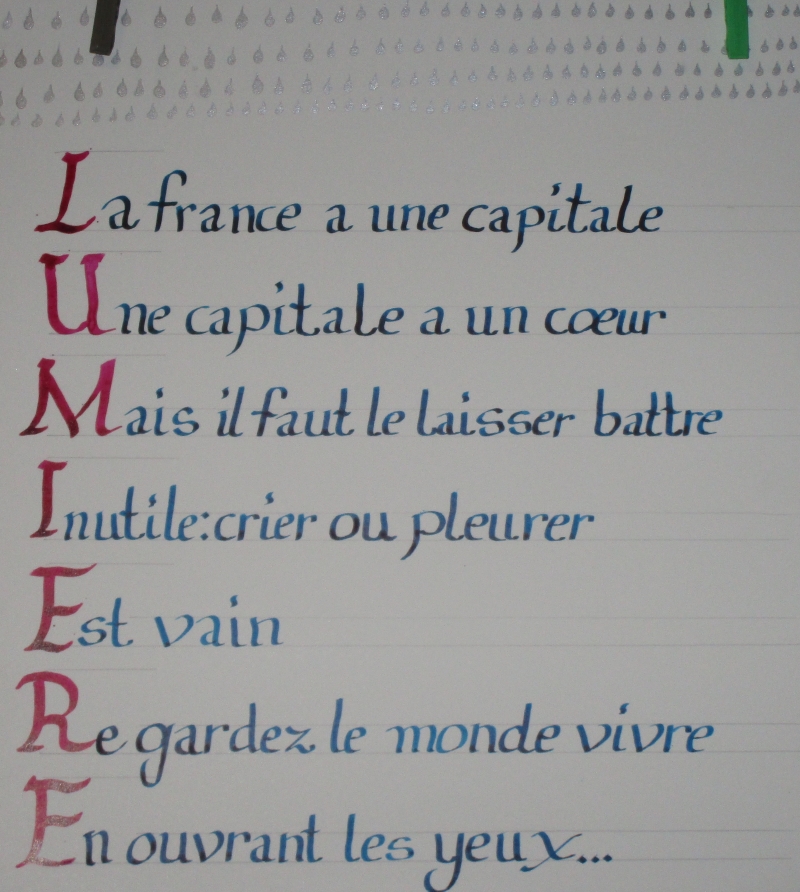 La france a une capitale
Une capitale a un cœur
Mais il faut le laisser battre
Inutile:crier ou pleurer
Est vain
Regardez le monde vivre
En ouvrant les yeux...